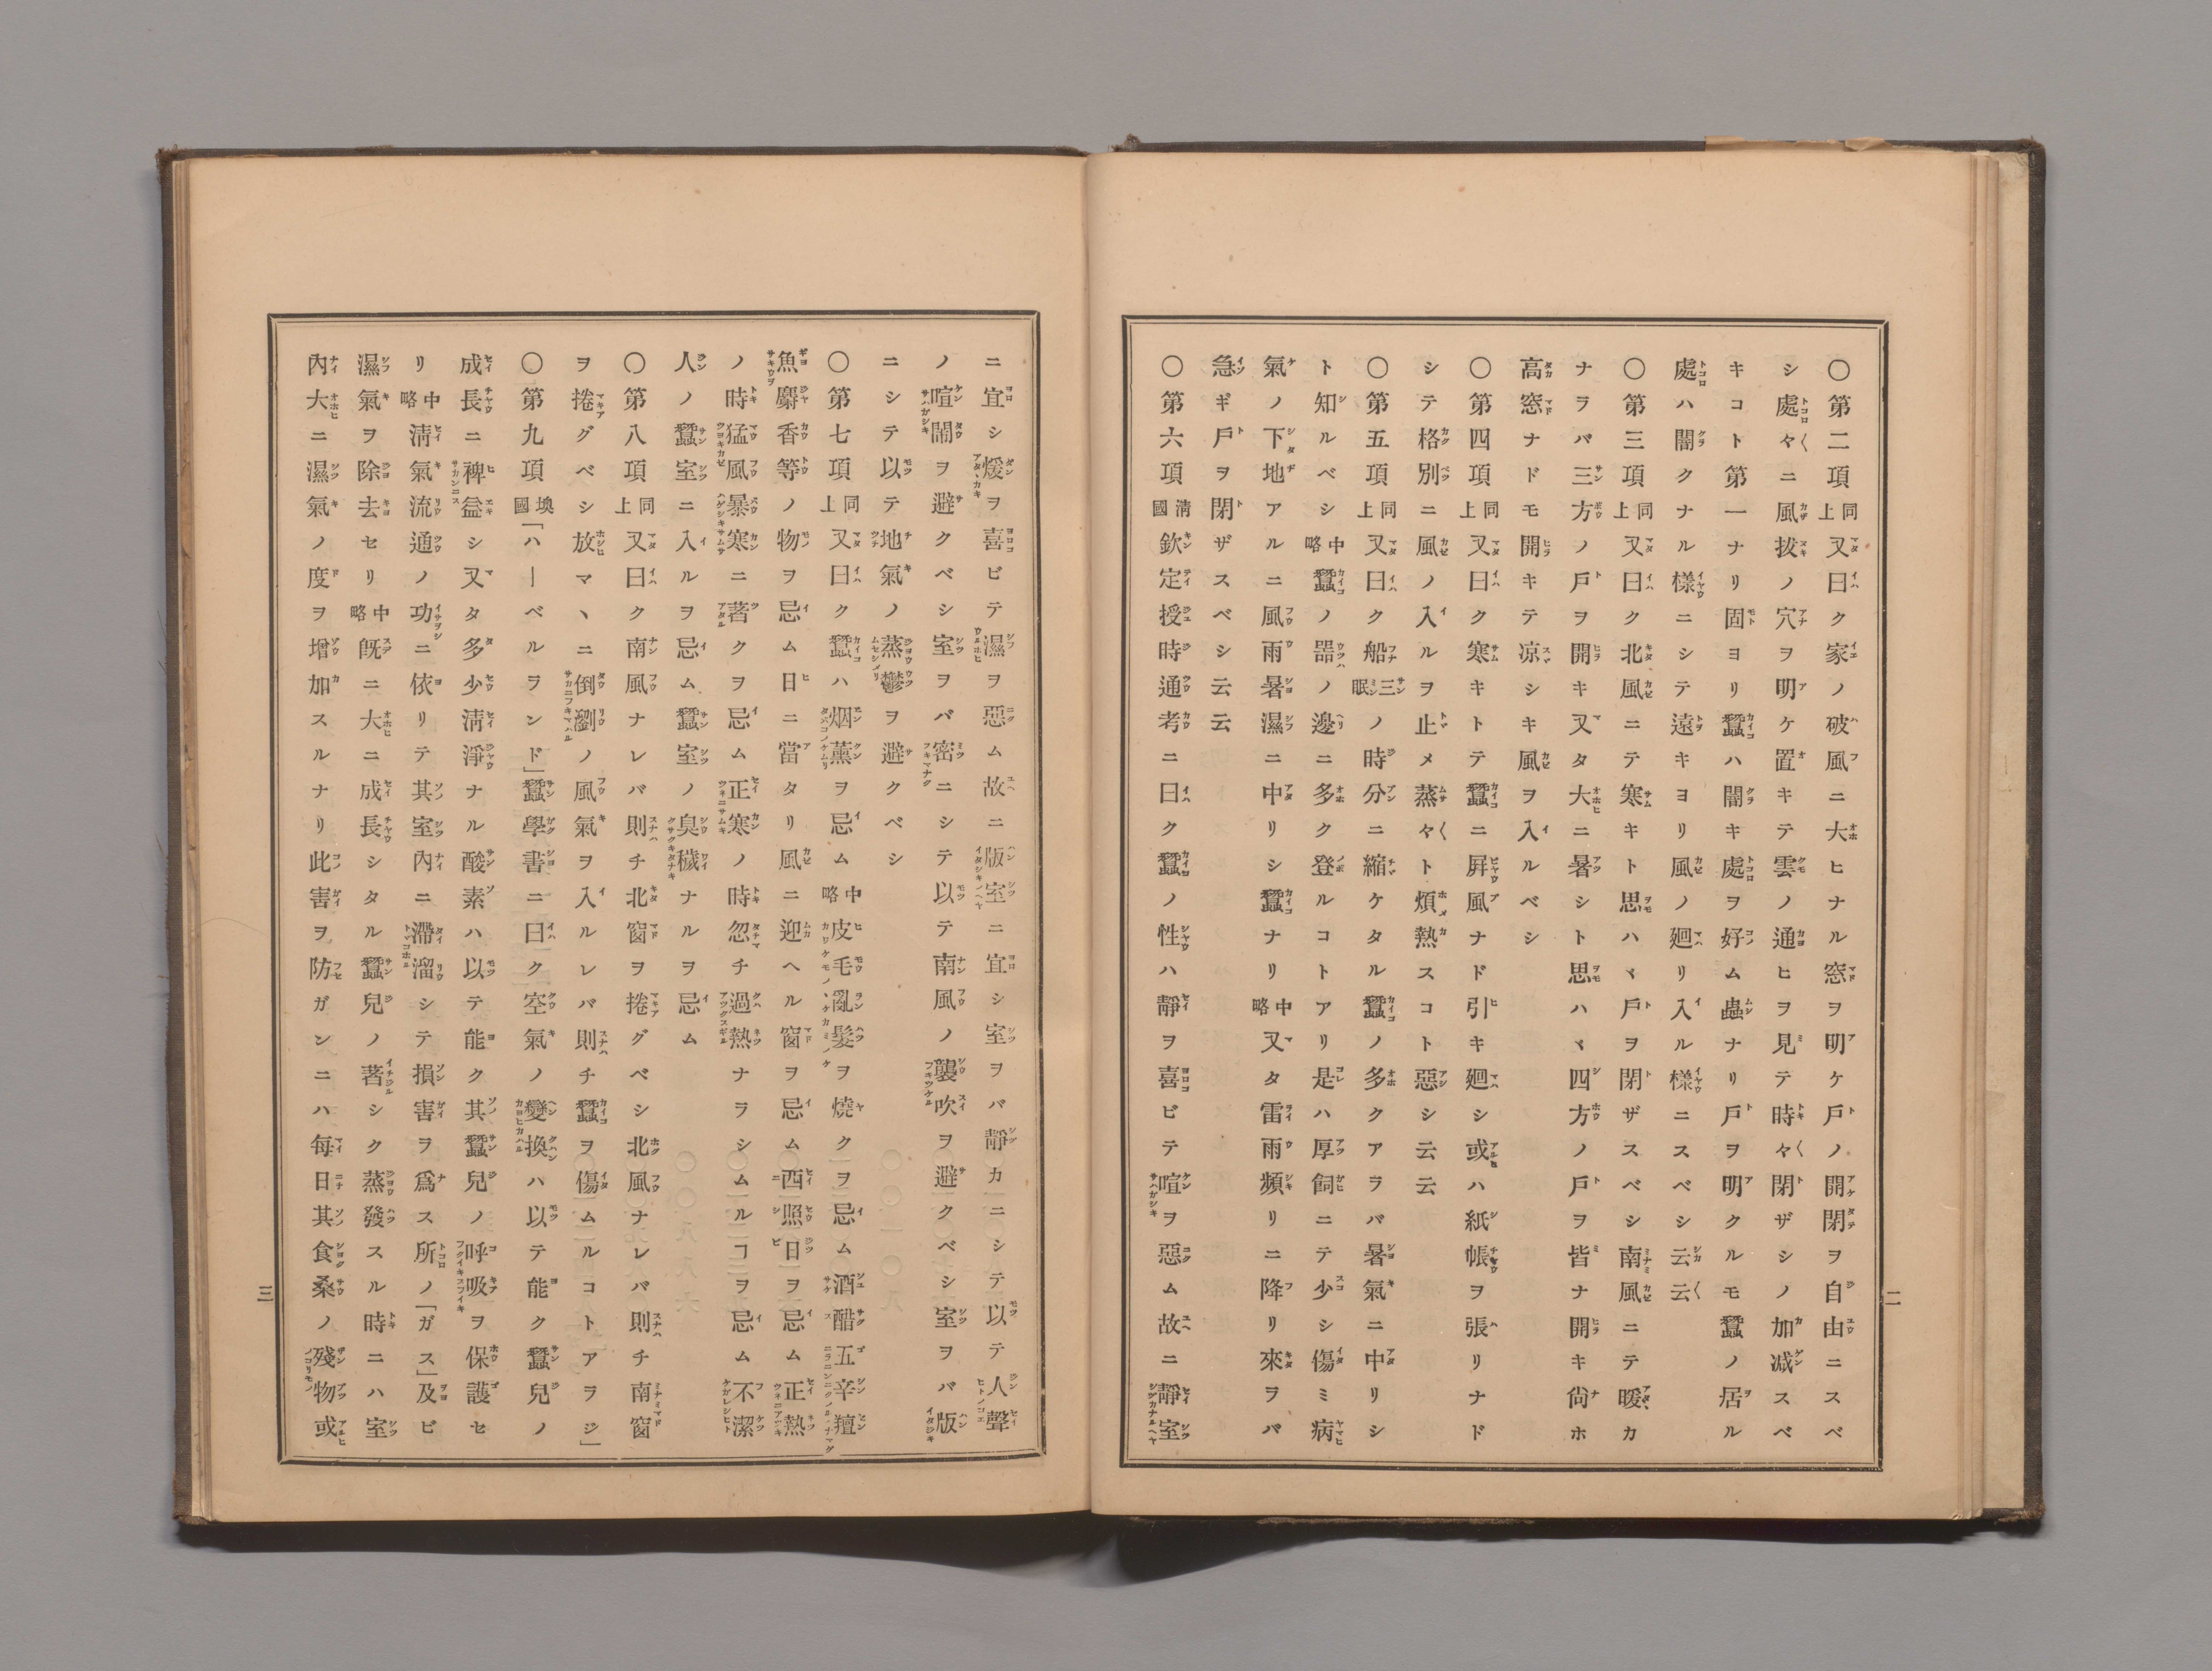 〇第二項同上又曰ク家ノ破風ニ大ヒナル窓ヲ明ケ戶ノ開閉ヲ自由ニスベ
シ處々ニ風拔ノ穴ヲ明ケ置キテ雲ノ通ヒヲ見テ時々閉ザシノ加减スベ
キコト第一ナリ固ヨリ蠶ハ闇キ處ヲ好ム蟲ナリ戶ヲ明クルモ蠶ノ居ル
處ハ闇クナル樣ニシテ遠キヨリ風ノ廻リ入ル樣ニスベシ云云
〇第三項同上又曰ク北風ニテ寒キト思ハヾ戶ヲ閉ザスベシ南風ニテ暖カ
ナヲバ三方ノ戶ヲ開キ又タ大ニ暑シト思ハヾ四方ノ戶ヲ皆ナ開キ尙ホ
高窓ナドモ開キテ凉シキ風ヲ入ルベシ
〇第四項同上又曰ク寒キトテ蠶ニ屛風ナド引キ廻シ或ハ紙帳ヲ張リナド
シテ格別ニ風ノ入ルヲ止メ蒸々ト煩熱スコト惡シシ云云
〇第五項同上又曰ク船三眠ノ時分ニ縮ケタル蠶ノ多クアラバ暑氣ニ中リシ
ト知ルベシ中略蠶ノ噐ノ邊ニ多ク登ルコトアリ是ハ厚飼ニテ少シ傷ミ病
氣ノ下地アルニ風雨暑濕ニ中リシ蠶ナリ中略又タ雷雨頻リニ降リ來ヲバ
急ギ戶ヲ閉ザスベシ云云
〇第六項淸國欽定授時通考ニ曰ク蠶ノ性ハ靜ヲ喜ビテ喧ヲ惡ム故ニ靜室
二
ニ宜シ煖ヲ喜ビテ濕ヲ惡ム故ニ版室ニ宜シ室ヲバ靜カニシテ以テ人聲
ノ喧鬧ヲ避クベシ室ヲバ密ニシテ以テ南風ノ襲吹ヲ避クベシ室ヲバ版
ニシテ以テ地氣ノ蒸鬱ヲ避クベシ
〇第七項同上又曰ク蠶ハ烟薰ヲ忌ム中略皮毛亂髮ヲ燒クヲ忌ム酒醋五辛羶
魚麝香等ノ物ヲ忌ム日ニ當タリ風ニ迎ヘル窗ヲ忌ム西照日ヲ忌ム正熱
ノ時猛風暴寒ニ著クヲ忌ム正寒ノ時忽チ過熱ナヲシムルヿヲ忌ム不潔
人ノ蠶室ニ入ルヲ忌ム蠶室ノ臭穢ナルヲ忌ム
〇第八項同上又曰ク南風ナレバ則チ北窗ヲ捲グベシ北風ナレバ則チ南窗
ヲ捲グベシ放マヽニ倒瀏ノ風氣ヲ入ルレバ則チ蠶ヲ傷ムルコトアラジ」
〇第九項墺國「ハ―ベルヲンド」蠶學書ニ曰ク空氣ノ變換ハ以テ能ク蠶兒ノ
成長ニ裨益シ又タ多少淸淨ナル酸素ハ以テ能ク其蠶兒ノ呼吸ヲ保護セ
リ中略淸氣流通ノ功ニ依リテ其室內ニ滯溜シテ損害ヲ爲ス所ノ「ガス」及ビ
濕氣ヲ除去セリ中略旣ニ大ニ成長シタル蠶兒ノ著シク蒸發スル時ニハ室
內大ニ濕氣ノ度ヲ增加スルナリ此害ヲ防ガンニハ每日其食桑ノ殘物或
三